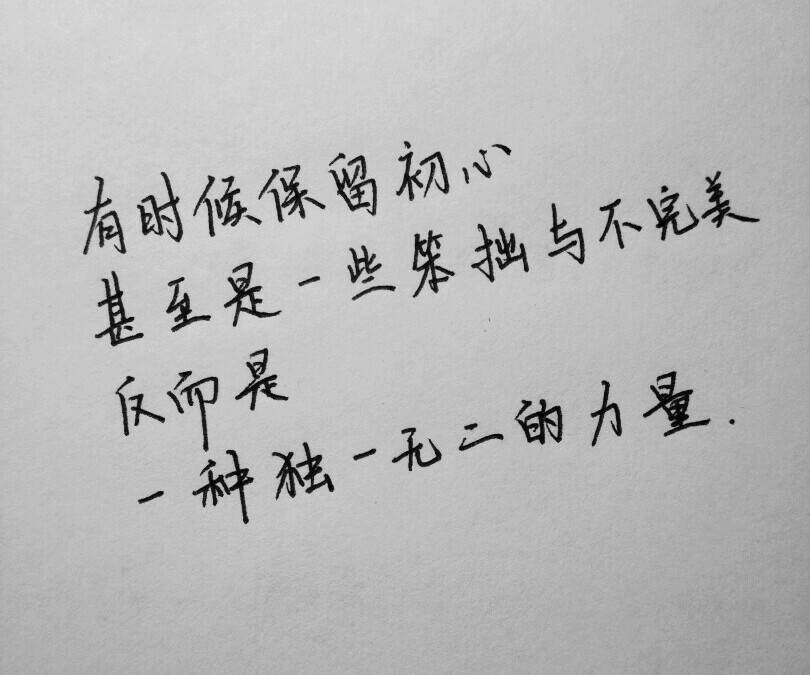 有时候保留初心
甚至是一些笨拙与不完美
反而是
一种独一无二的力量.